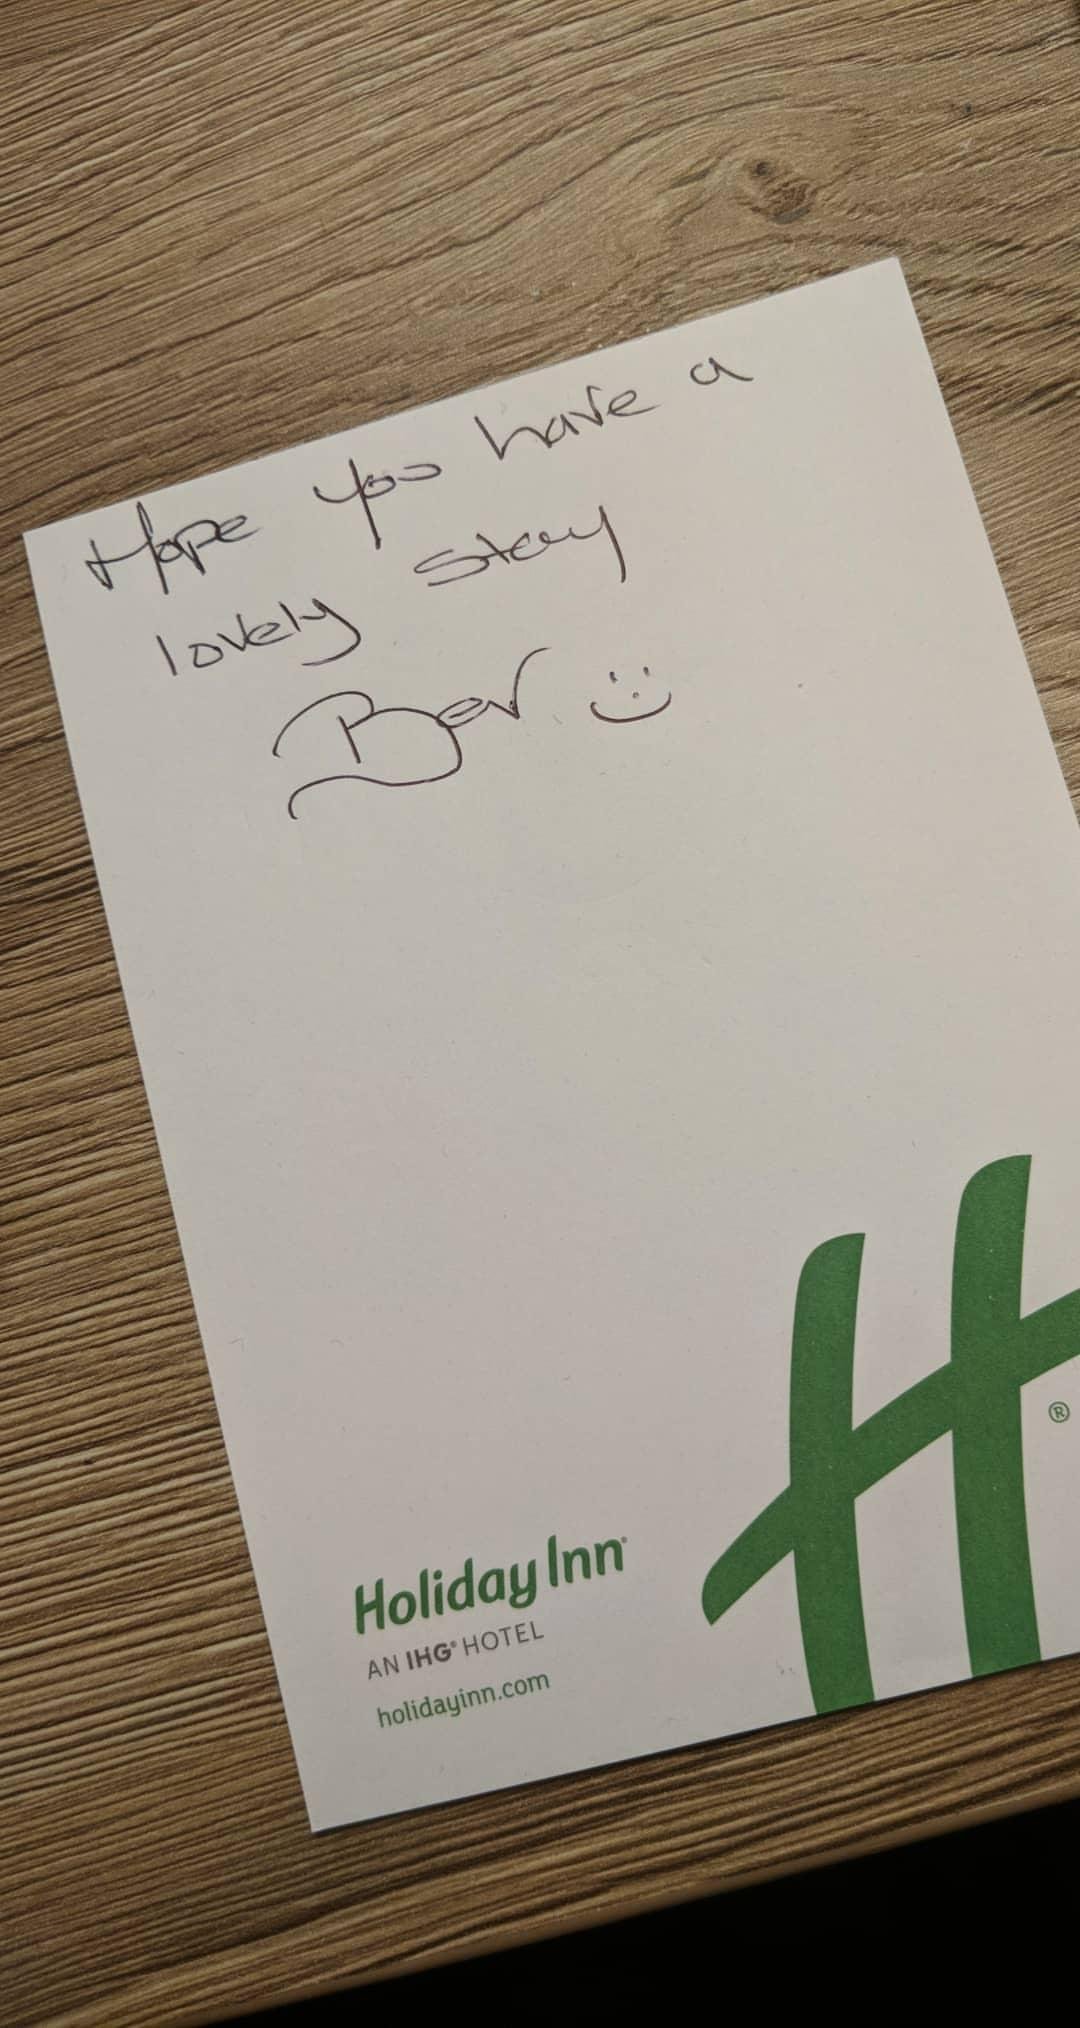 Hope you have a
lovely stay
Bev :)
Holiday Inn®
AN IHG® HOTEL
holidayinn.com
H®